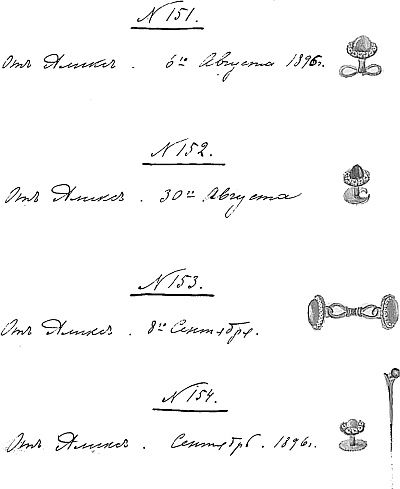 N 151.
Отъ Аликсъ. 6го Августа 1896г.
N 152.
Отъ Аликсъ. 30го Августа
N 153.
Отъ Аликсъ. 8го Сентября.
N 154.
Отъ Аликсъ. Сентябрь. 1896г.